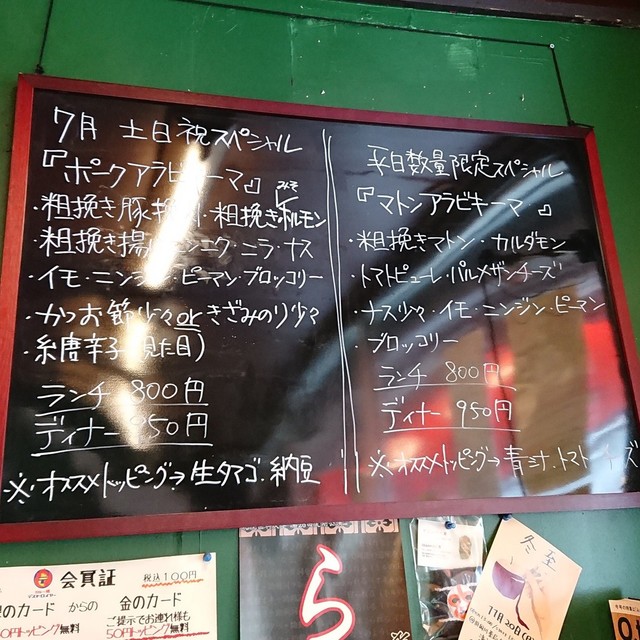 7月 土日祝スペシャル
『ポークアラビキーマ』
みそ
・粗挽き豚 ・粗挽きホルモン
・粗挽き揚 ニンニク・ニラ・ナス
・イモ・ニンジン・ピーマン・ブロッコリー
・かつお節少々orきざみのり少々
・糸唐辛子(見た目)
ランチ 800円
ディナー 950円
※オススメトッピング→生タマゴ.納豆
平日数量限定スペシャル
『マトンアラビキーマ』
・粗挽きマトン・カルダモン
・トマトピューレ・パルメザンチーズ
・ナス少々・イモ・ニンジン・ピーマン
・ブロッコリー
ランチ 800円
ディナー 950円
※オススメトッピング→青ジソ.トマト
会員証 税込100円
のカード からの
金のカード
ご提示でお連れ様も
トッピング無料
50円トッピング無料
ら
冬至